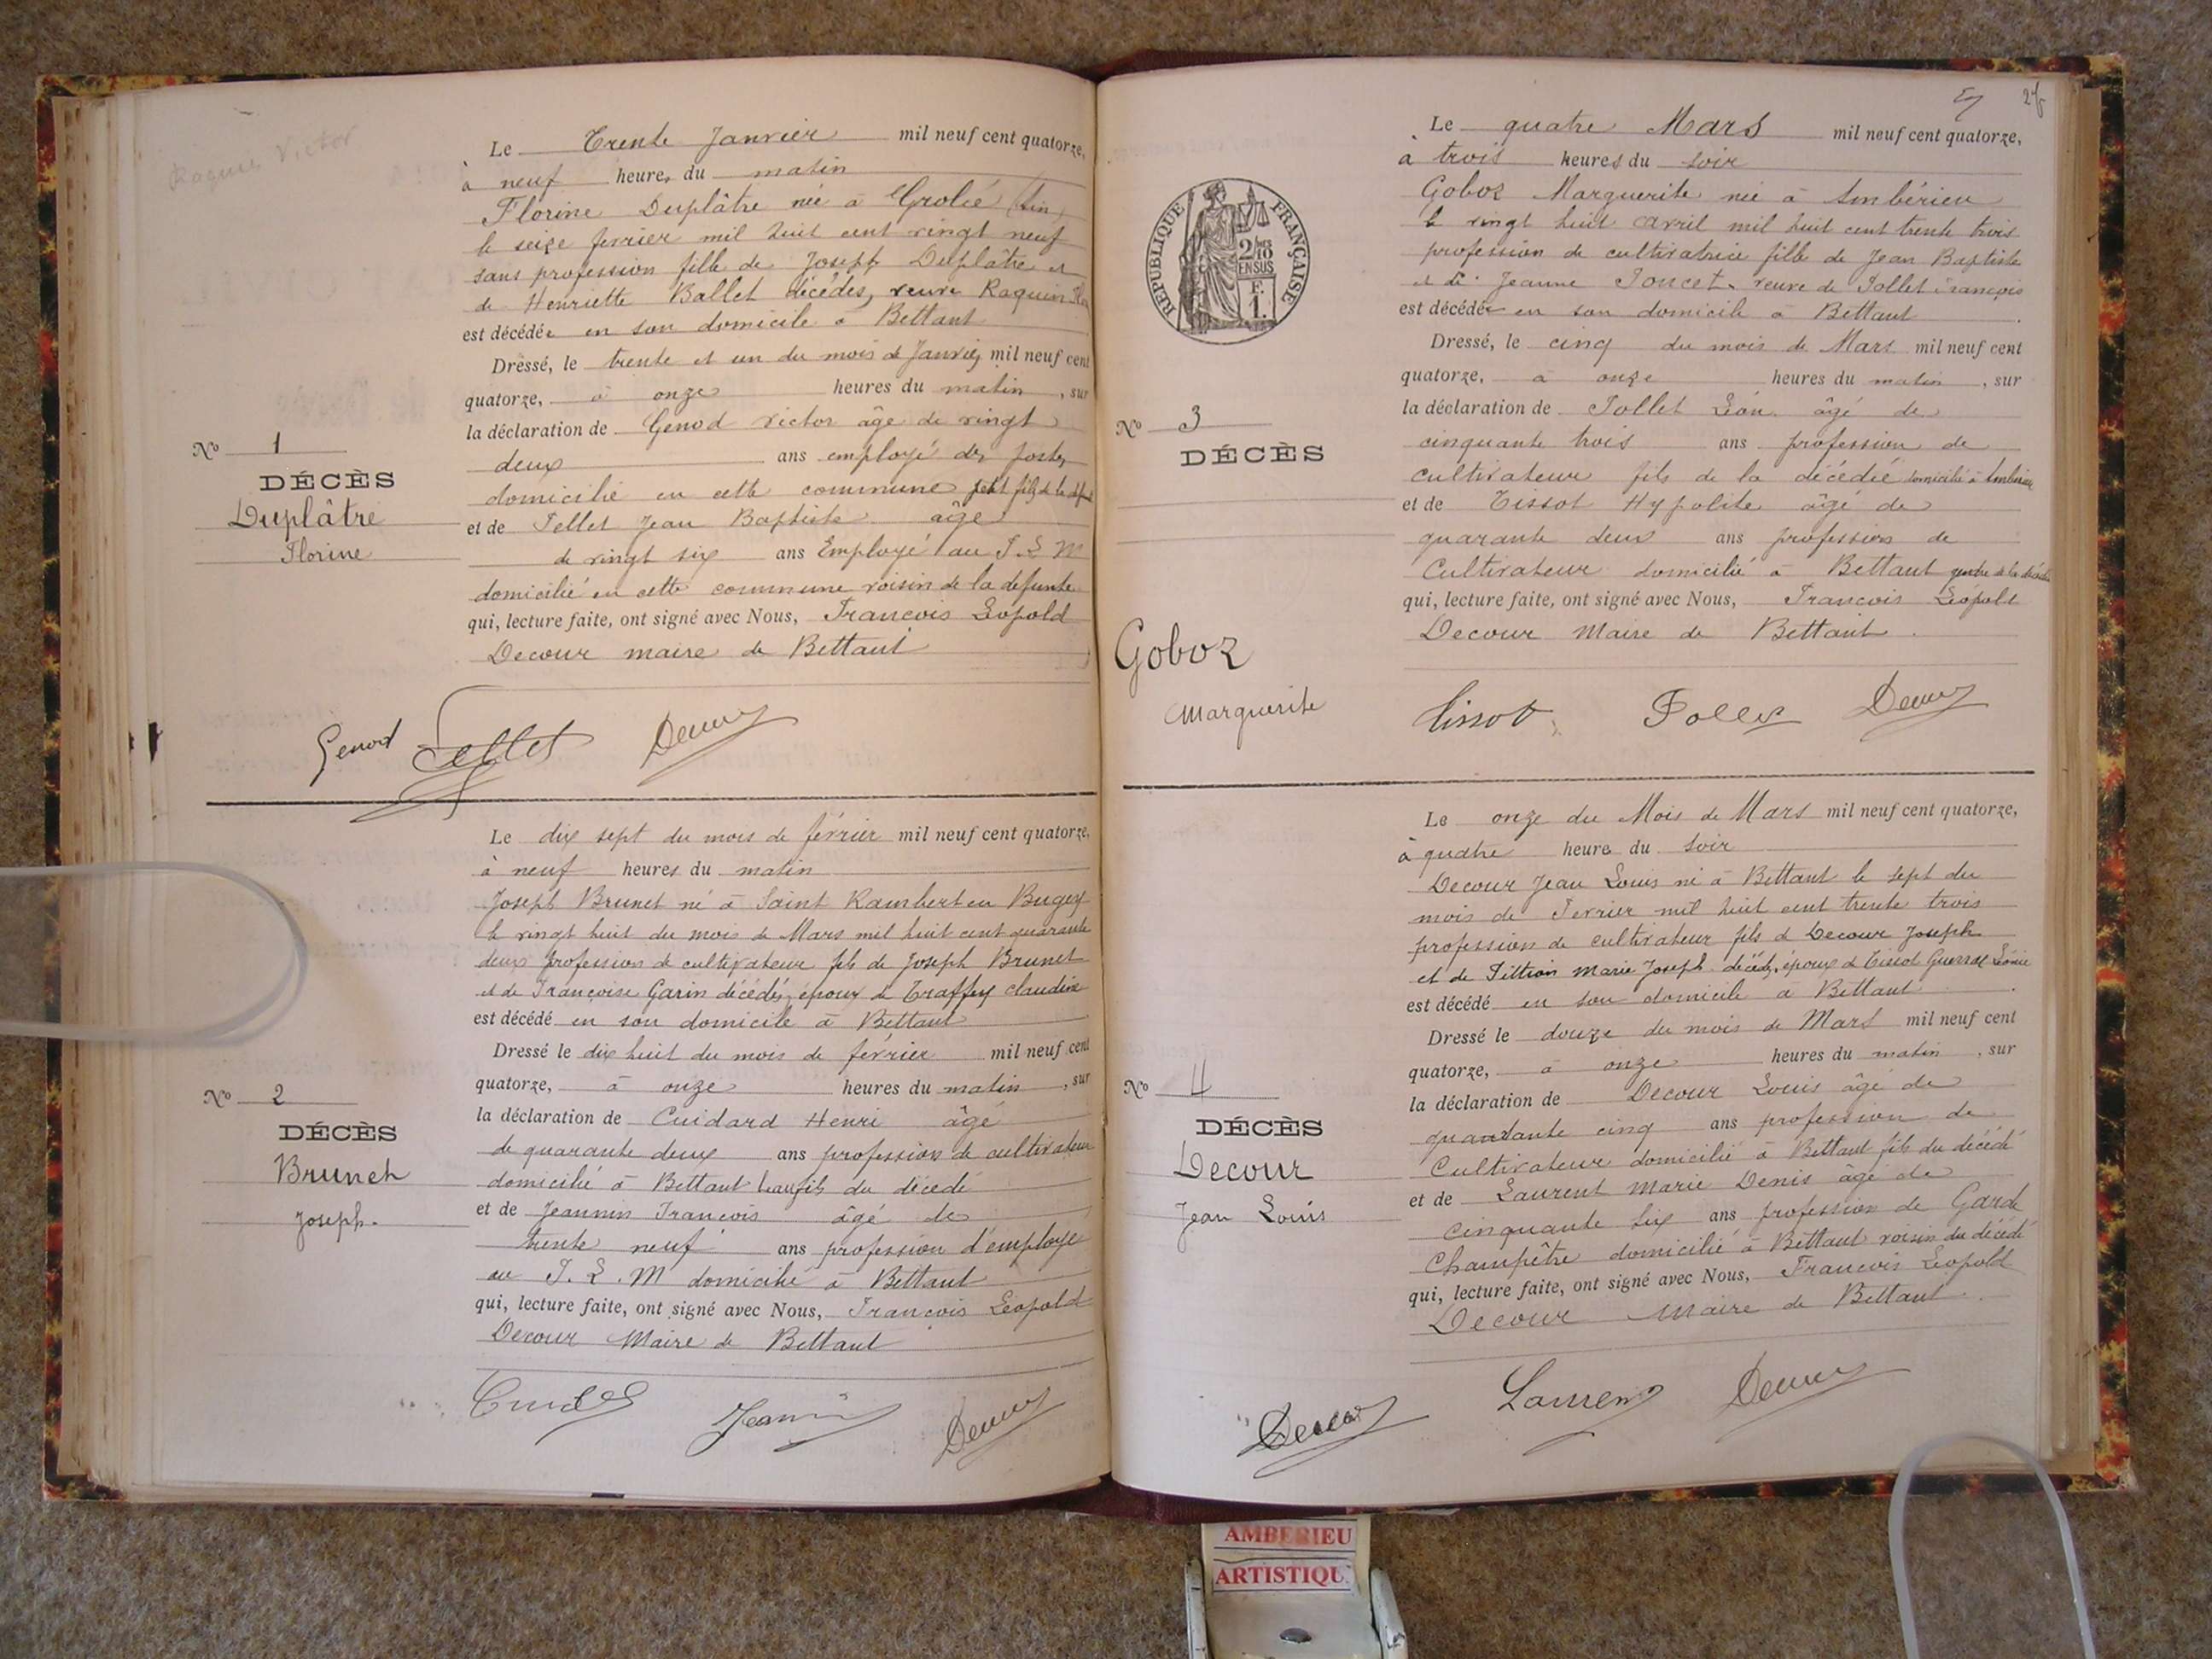 Raquin Victor
Le Trente Janvier mil neuf cent quatorze,
à neuf heures du matin
Florine Duplâtre née à Groslée (Ain)
le seize fevrier mil huit cent vingt neuf
sans profession fille de Joseph Duplâtre et
de Henriette Ballet décédés, veuve Raquin
est décédée en son domicile à Bettant
Dressé, le trente et un du mois de Janvier, mil neuf cent
quatorze, à onze heures du matin, sur
la déclaration de Genod Victor âgé de vingt
deux ans employé des Postes
domicilié en cette commune petit fils de la
et de Pellet Jean Baptiste âgé
de vingt six ans Employé au P. L M
domicilié en cette commune voisin de la defunte
qui, lecture faite, ont signé avec Nous, Francois Léopold
Decour maire de Bettant
No 1
DÉCÈS
Duplâtre
Florine
Genod Pellet Decour
Le dix sept du mois de février mil neuf cent quatorze,
à neuf heures du matin
Joseph Brunet né à Saint Rambert en Bugey
le vingt huit du mois de Mars mil huit cent quarante
deux profession de cultivateur fils de Joseph Brunet
et de Françoise Garin décédés, époux de Traffey Claudine
est décédé en son domicile à Bettant
Dressé le dix huit du mois de février mil neuf cent
quatorze, à onze heures du matin, sur
la déclaration de Cuidard Henri âgé
de quarante deux ans profession de cultivateur
domicilié à Bettant beaufils du décédé
et de Jeannin Francois âgé de
trente neuf ans profession d'employé
au P. L. M domicilié à Bettant
qui, lecture faite, ont signé avec Nous, Francois Léopold
Decour Maire de Bettant
No 2
DÉCÈS
Brunet
Joseph.
Jeannin Decour
Le quatre Mars mil neuf cent quatorze,
à trois heures du soir
Goboz Marguerite née à Ambérieu
le vingt huit avril mil huit cent trente trois
profession de cultivatrice fille de Jean Baptiste
et de Jeanne Poncet. veuve de Pollet François
est décédée en son domicile à Bettant
Dressé, le cinq du mois de Mars mil neuf cent
quatorze, à onze heures du matin, sur
la déclaration de Pollet Léon. âgé de
cinquante trois ans profession de
cultivateur fils de la décédée domicilié à Ambérieu
et de Tissot Hypolite âgé de
quarante deux ans profession de
Cultivateur domicilié à Bettant gendre de la décédée
qui, lecture faite, ont signé avec Nous, Francois Léopold
Decour Maire de Bettant.
REPUBLIQUE FRANÇAISE
2/10
EN SUS
F.
1.
No 3
DÉCÈS
Goboz
Marguerite
Tissot Pollet Decour
Le onze du Mois de Mars mil neuf cent quatorze,
à quatre heure du soir
Decour Jean Louis né à Bettant le sept du
mois de Fevrier mil huit cent trente trois
profession de cultivateur fils de Decour Joseph
et de Pittion Marie Joseph. décédés, époux de Tissot Léonie
est décédé en son domicile à Bettant.
Dressé le douze du mois de Mars mil neuf cent
quatorze, à onze heures du matin, sur
la déclaration de Decour Louis âgé de
quarante cinq ans profession de
Cultivateur domicilié à Bettant fils du décédé
et de Laurent Marie Denis âgé de
cinquante six ans profession de Garde
Champêtre domicilié à Bettant voisin du décédé
qui, lecture faite, ont signé avec Nous, Francois Léopold
Decour Maire de Bettant.
No 4
DÉCÈS
Decour
Jean Louis
Decour Laurent Decour
AMBERIEU
ARTISTIQU